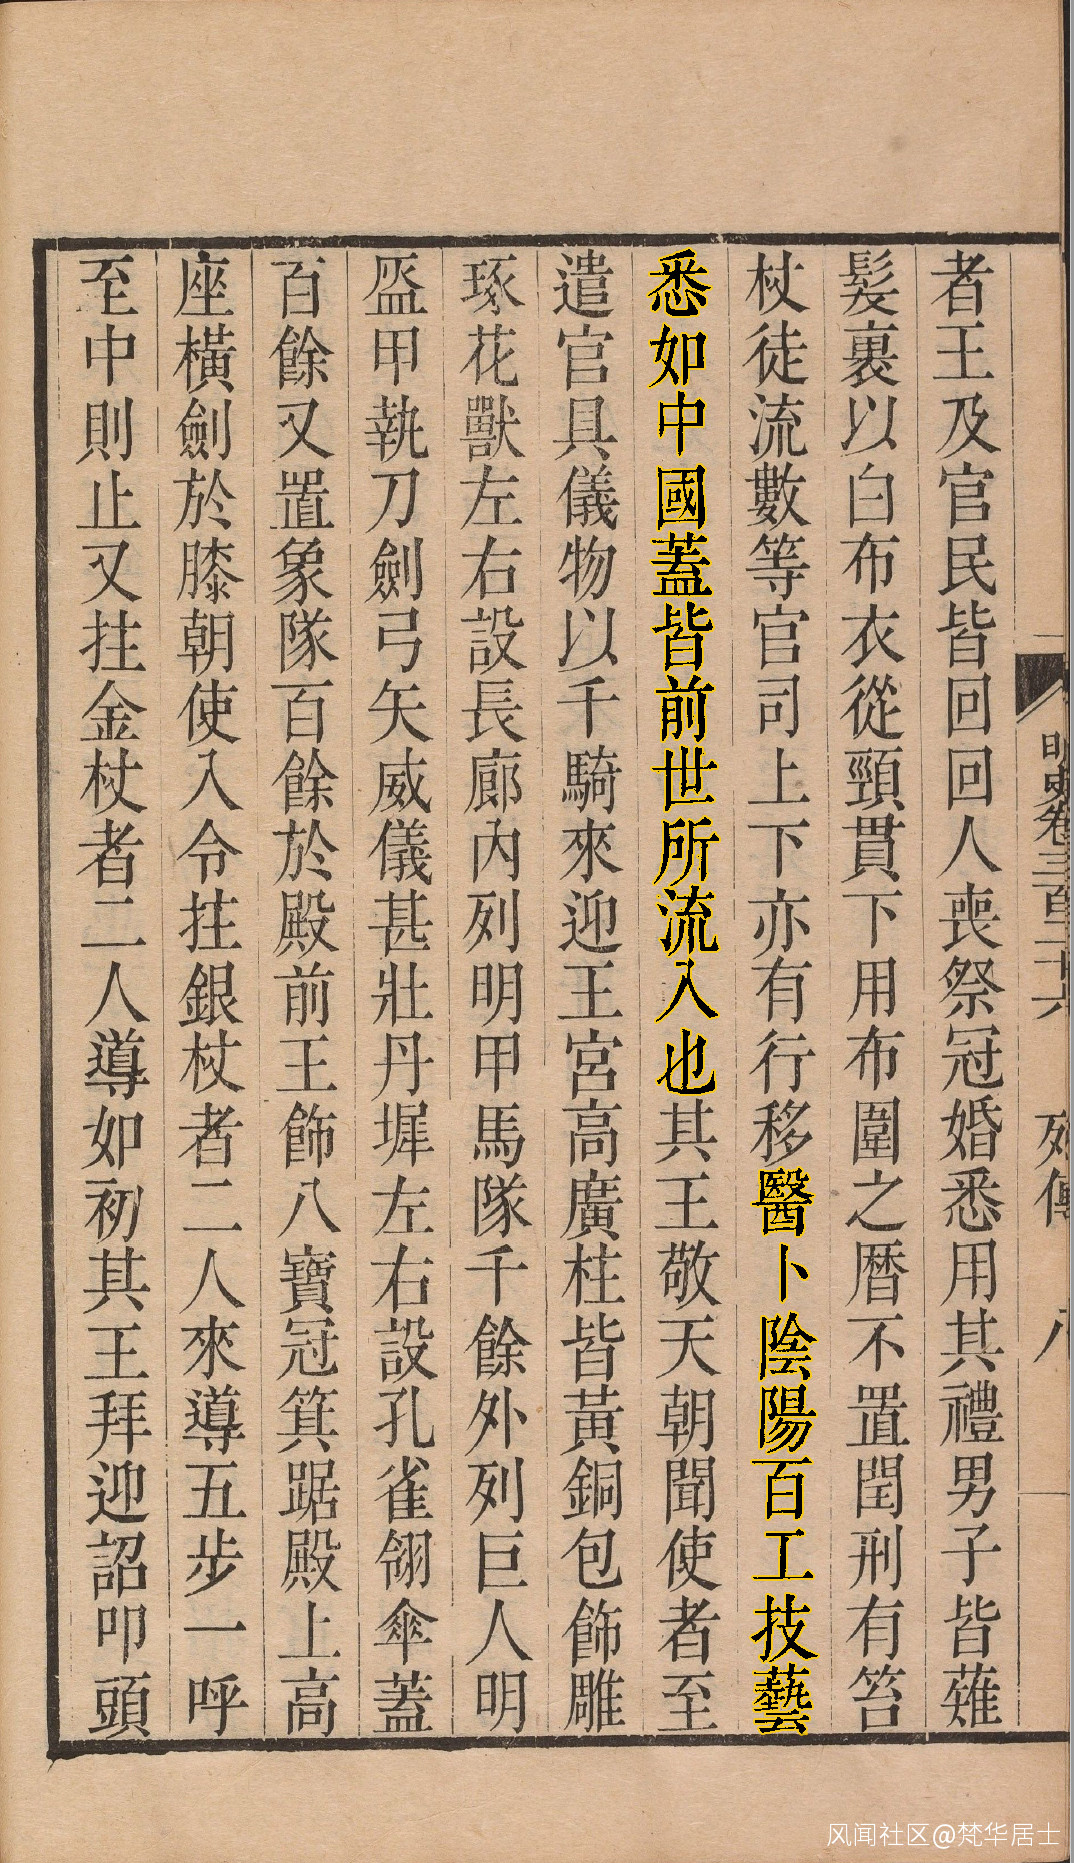 明史卷三百二十六 列傳 八
者王及官民皆回回人喪祭冠婚悉用其禮男子皆薙
髮裹以白布衣從頸貫下用布圍之暦不置閏刑有笞
杖徒流數等官司上下亦有行移醫卜陰陽百工技藝
悉如中國蓋皆前世所流入也其王敬天朝聞使者至
遣官具儀物以千騎來迎王宮高廣柱皆黃銅包飾雕
琢花獸左右設長廊內列明甲馬隊千餘外列巨人明
盔甲執刀劍弓矢威儀甚壯丹墀左右設孔雀翎傘蓋
百餘又置象隊百餘於殿前王飾八寶冠箕踞殿上高
座橫劍於膝朝使入令拄銀杖者二人來導五步一呼
至中則止又拄金杖者二人導如初其王拜迎詔叩頭
风闻社区@梵华居士